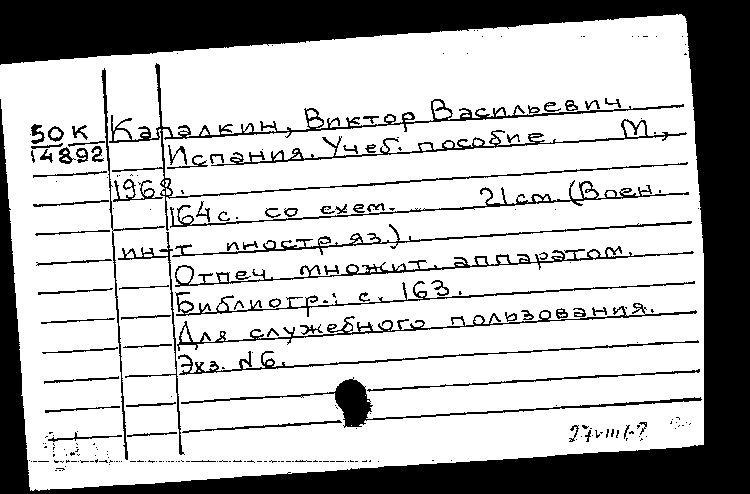 50К Капалкин, Виктор Васильевич.
14892 Испания. Учеб. пособие. М.,
1968.
164с. со схем. 21см. (Воен.
ин-т иностр. яз.).
Отпеч. множит. аппаратом.
Библиогр.: с. 163.
Для служебного пользования.
Экз. №6.